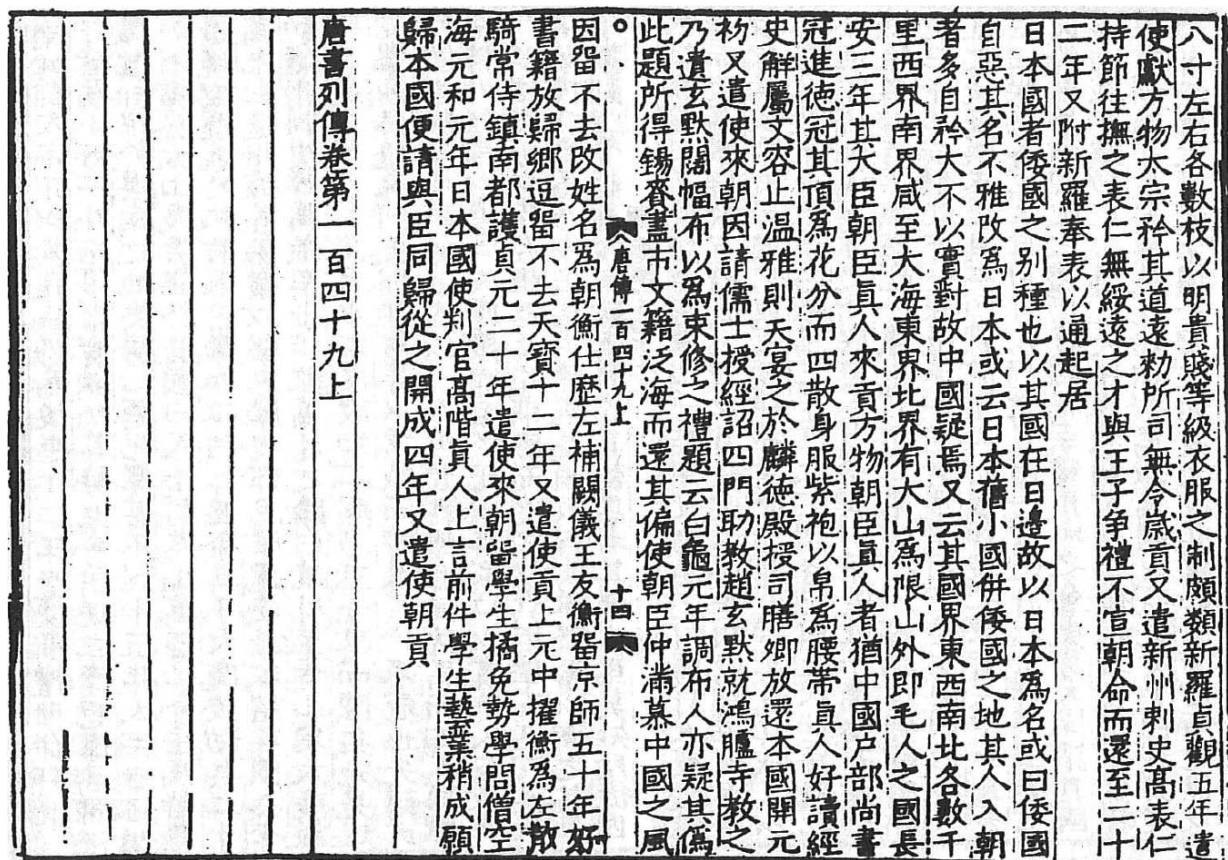 八寸左右各數枝以明貴賤等級衣服之制頗類新羅貞觀五年遣
使獻方物太宗矜其道遠勑所司無令歲貢又遣新州刺史髙表仁
持節往撫之表仁無綏遠之才與王子爭禮不宣朝命而還至二十
二年又附新羅奉表以通起居
日本國者倭國之别種也以其國在日邊故以日本爲名或曰倭國
自惡其名不雅改爲日本或云日本舊小國併倭國之地其人入朝
者多自矜大不以實對故中國疑焉又云其國界東西南北各數千
里西界南界咸至大海東界北界有大山爲限山外即毛人之國長
安三年其大臣朝臣眞人來貢方物朝臣眞人者猶中國户部尚書
冠進德冠其頂爲花分而四散身服紫袍以帛爲腰帶眞人好讀經
史解屬文容止温雅則天宴之於麟德殿授司膳卿放還本國開元
初又遣使來朝因請儒士授經詔四門助教趙玄默就鴻臚寺教之
乃遺玄默闊幅布以爲束修之禮題云白龜元年調布人亦疑其僞
此題所得錫賚盡市文籍泛海而還其偏使朝臣仲滿慕中國之風
唐傳一百四十九上 十四
因留不去改姓名爲朝衡仕歷左補闕儀王友衡留京師五十年好
書籍放歸鄉逗留不去天寳十二年又遣使貢上元中擢衡爲左散
騎常侍鎮南都護貞元二十年遣使來朝留學生橘免勢學問僧空
海元和元年日本國使判官髙階眞人上言前件學生藝業稍成願
歸本國便請與臣同歸從之開成四年又遣使朝貢
唐書列傳卷第一百四十九上